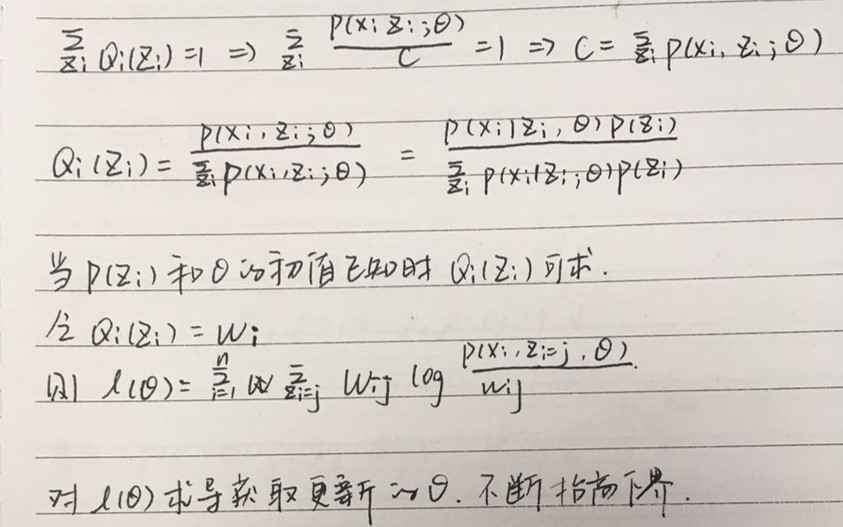 ∑_{Zi} Qi(Zi)=1 => ∑_{Zi} P(xi Zi;θ)/C =1 => C= ∑_{Zi} P(xi, Zi;θ)
Qi(Zi)= P(xi, Zi;θ)/∑_{Zi} P(xi, Zi;θ) = P(xi|Zi, θ)P(Zi)/∑_{Zi} P(xi|Zi;θ)P(Zi)
当 P(Zi) 和 θ 的初值已知时 Qi(Zi) 可求.
令 Qi(Zi) = Wi
则 l(θ)= ∑_{i=1}^{n} ∑_{Zi=j} Wij log P(xi, Zi=j, θ)/Wij.
对 l(θ) 求导获取更新的θ. 不断抬高下界.